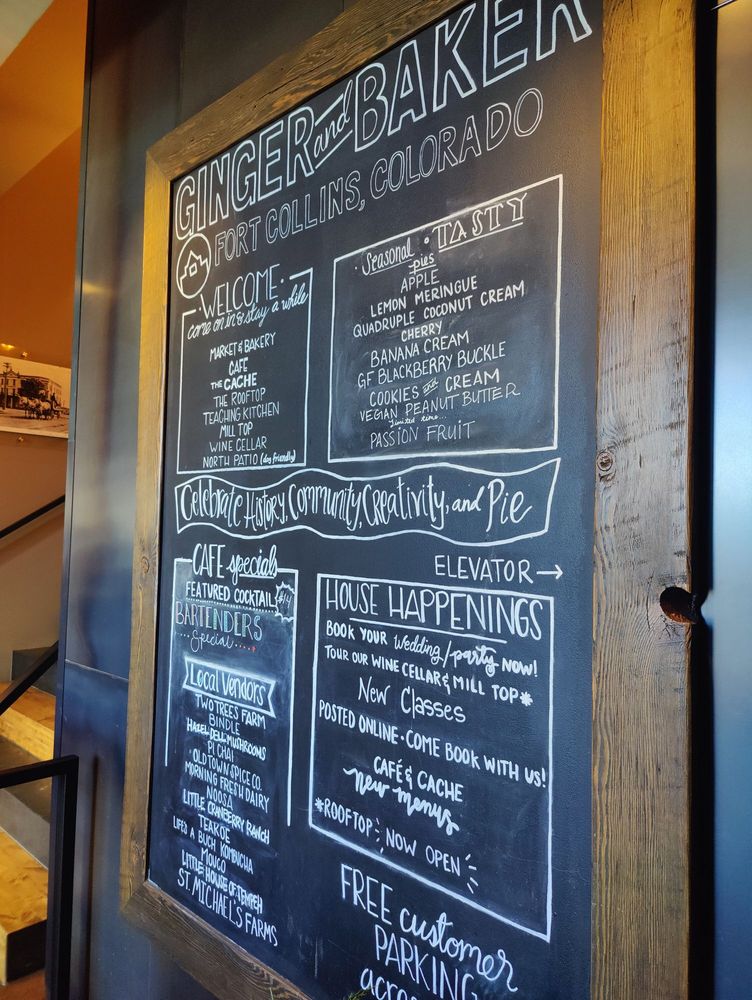 GINGER and BAKER
FORT COLLINS, COLORADO
·WELCOME·
come on in & stay a while
MARKET & BAKERY
CAFE
THE CACHE
THE ROOFTOP
TEACHING KITCHEN
MILL TOP
WINE CELLAR
NORTH PATIO (dog friendly)
·Seasonal·TASTY
pies
APPLE
LEMON MERINGUE
QUADRUPLE COCONUT CREAM
CHERRY
BANANA CREAM
GF BLACKBERRY BUCKLE
COOKIES and CREAM
VEGAN PEANUT BUTTER
limited time...
PASSION FRUIT
Celebrate History, Community, Creativity, and Pie
ELEVATOR →
CAFE specials
FEATURED COCKTAIL $14
BARTENDERS
Special
Local Vendors
TWO TREES FARM
BINDLE
HAZEL DELL MUSHROOMS
PI CHAI
OLD TOWN SPICE CO.
MORNING FRESH DAIRY
NOOSA
LITTLE CRANBERRY RANCH
TEAKOE
LIFE'S A BUCH KOMBUCHA
MOUCO
LITTLE HOUSE OF TEMPEH
ST. MICHAEL'S FARMS
HOUSE HAPPENINGS
BOOK YOUR wedding/party NOW!
TOUR OUR WINE CELLAR & MILL TOP*
New Classes
POSTED ONLINE · COME BOOK WITH US!
CAFÉ & CACHE
new menus
*ROOFTOP NOW OPEN
FREE customer
PARKING